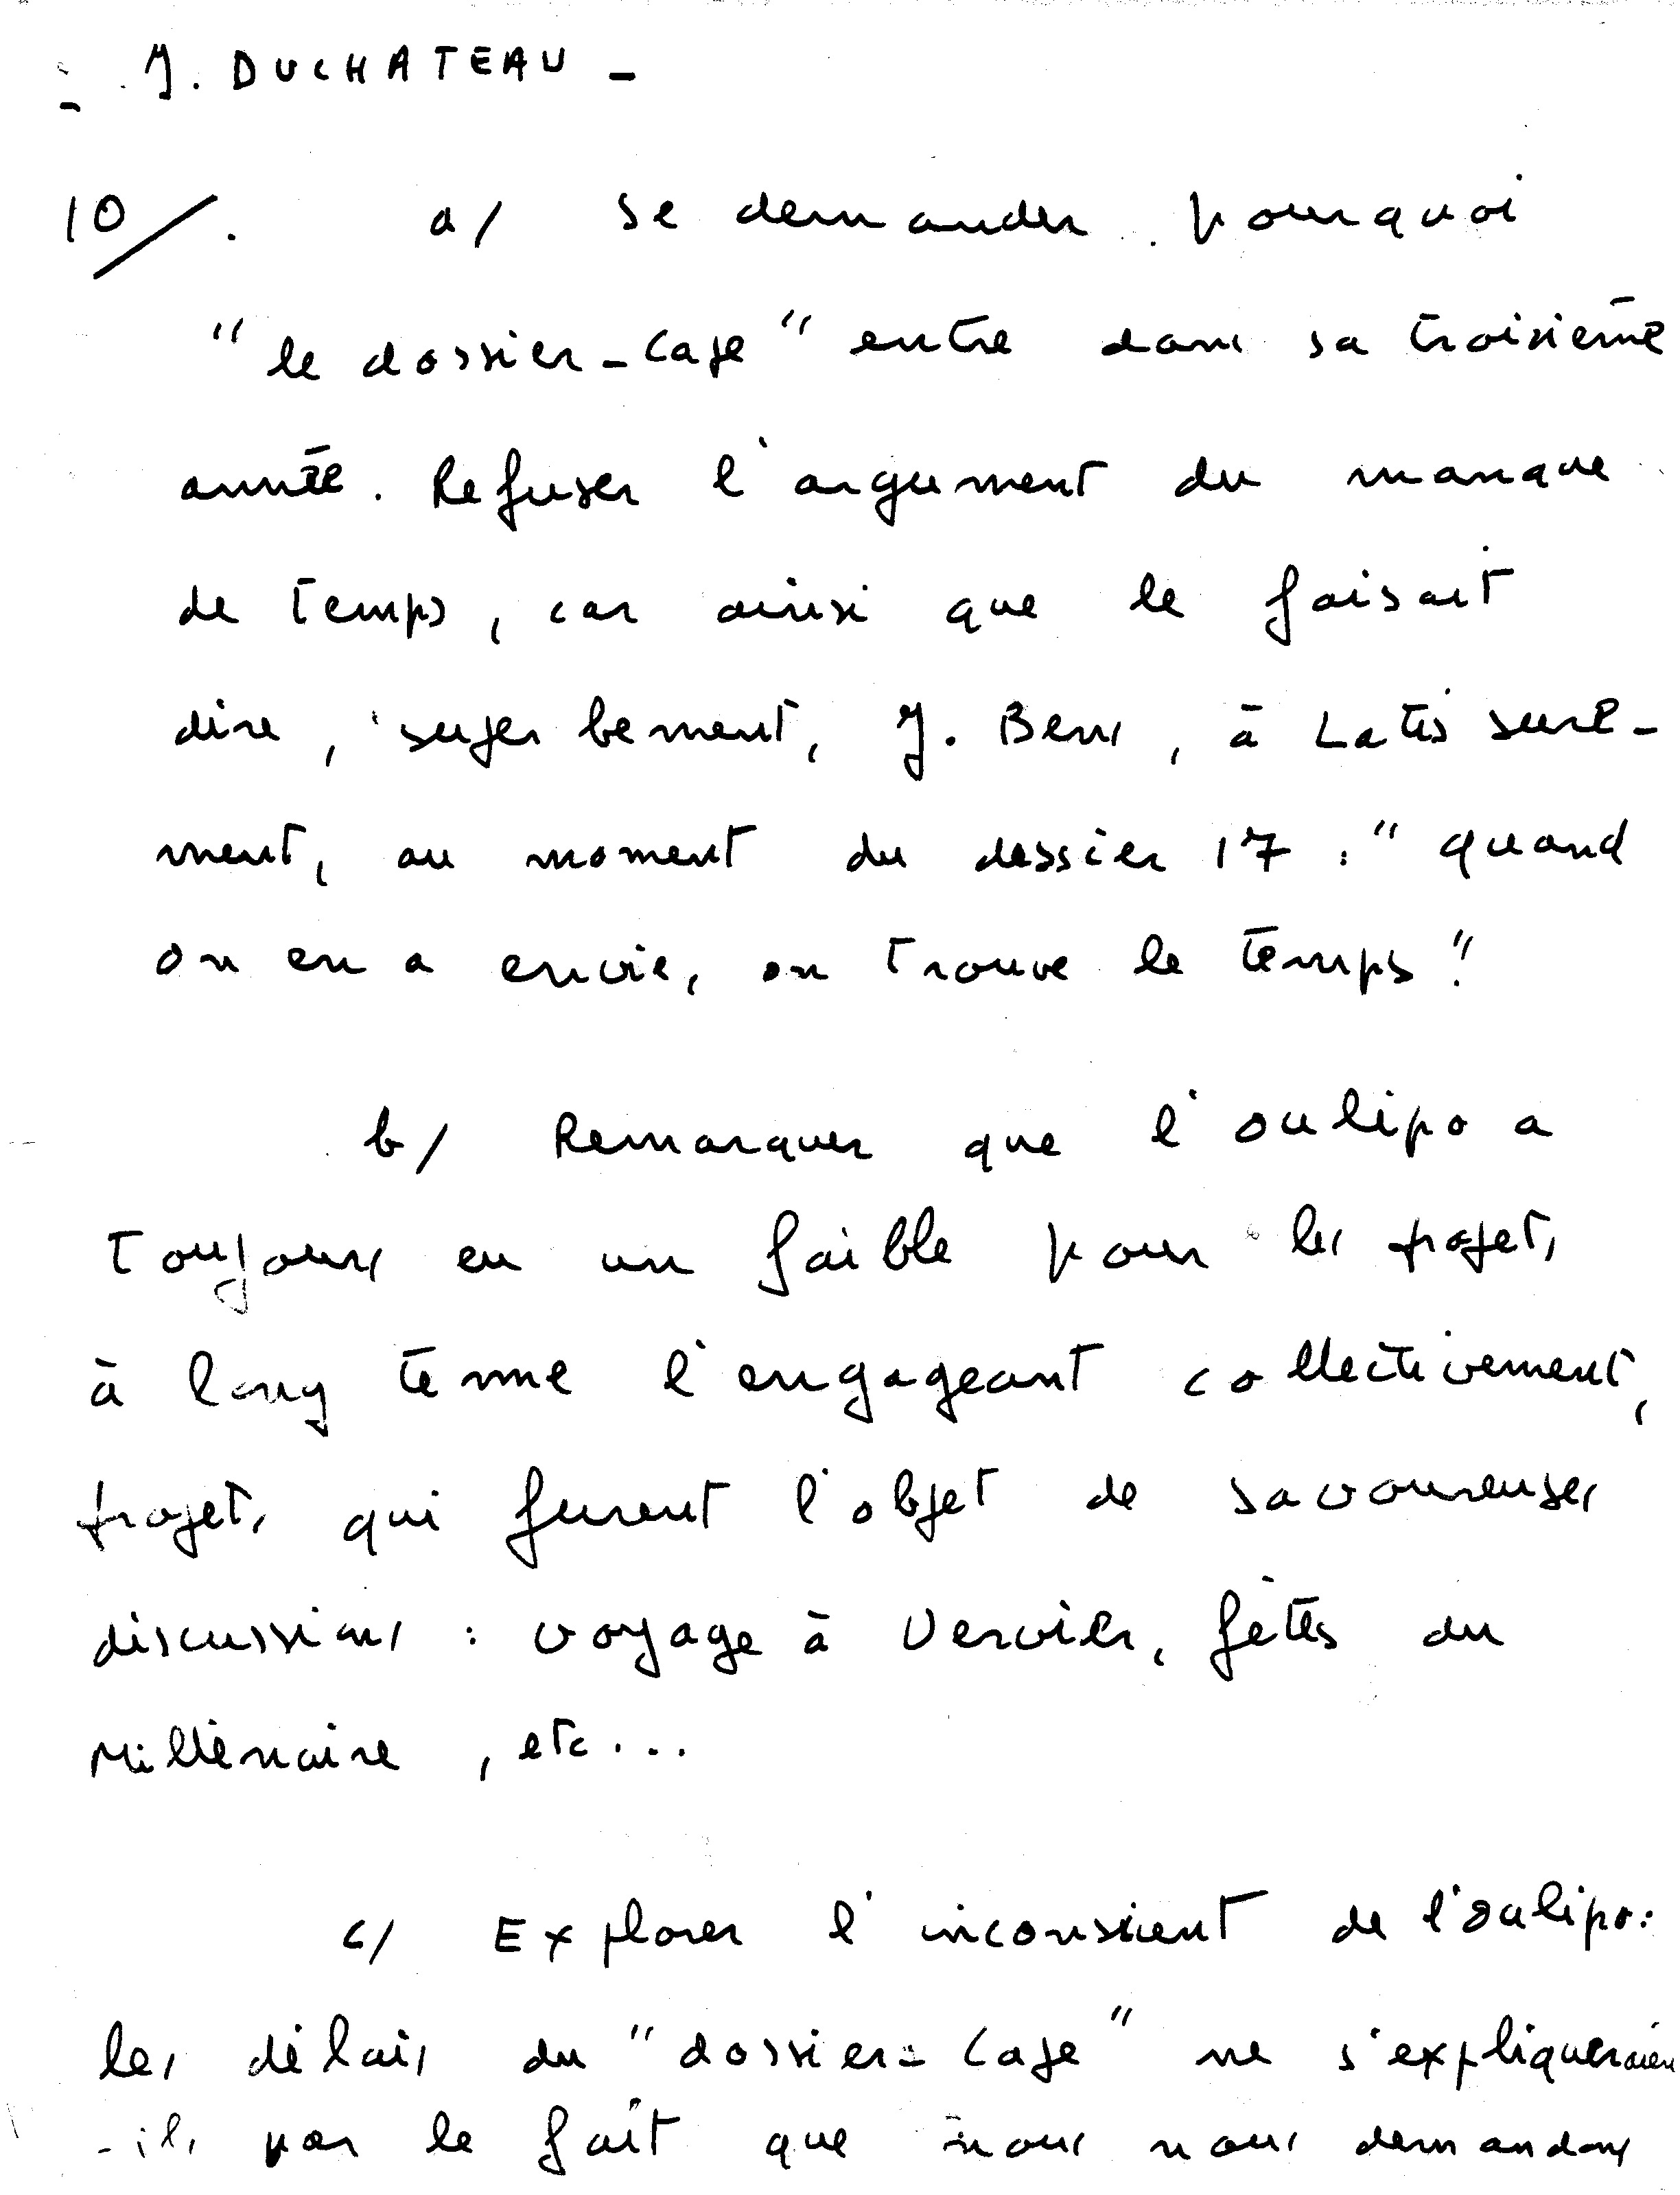 - J. DUCHATEAU -
10/. a/ Se demander pourquoi
"le dossier-cape" entre dans sa troisième
année. Refuser l'argument du manque
de temps, car ainsi que le faisait
dire, superbement, J. Bens, à Latis sure-
ment, au moment du dossier 17 : "quand
on en a envie, on trouve le temps".
b/ Remarquer que l'oulipo a
toujours eu un faible pour les projets
à long terme l'engageant collectivement,
projets qui furent l'objet de savoureuses
discussions : voyage à Vervier, fêtes du
Millénaire, etc...
c/ Explorer l'inconscient de l'oulipo:
les délais du "dossier-cape" ne s'expliqueraient
-ils par le fait que nous nous demandons